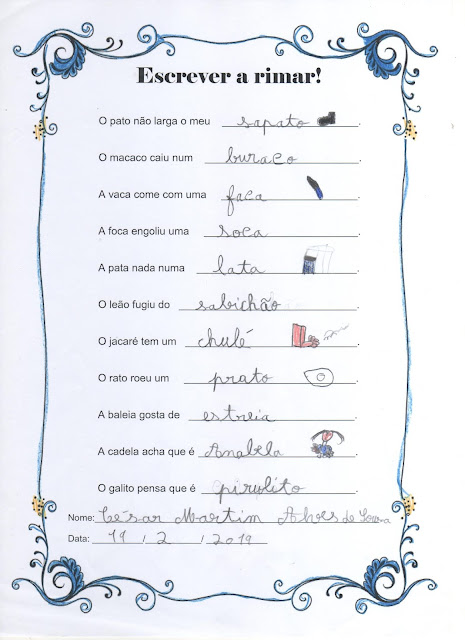 Escrever a rimar!
O pato não larga o meu sapato.
O macaco caiu num buraco.
A vaca come com uma faca.
A foca engoliu uma soca.
A pata nada numa lata.
O leão fugiu do sabichão.
O jacaré tem um chulé.
O rato roeu um prato.
A baleia gosta de estreia.
A cadela acha que é Anabela.
O galito pensa que é pirulito.
Nome: César Martim Alves de Sousa
Data: 19 / 2 / 2019